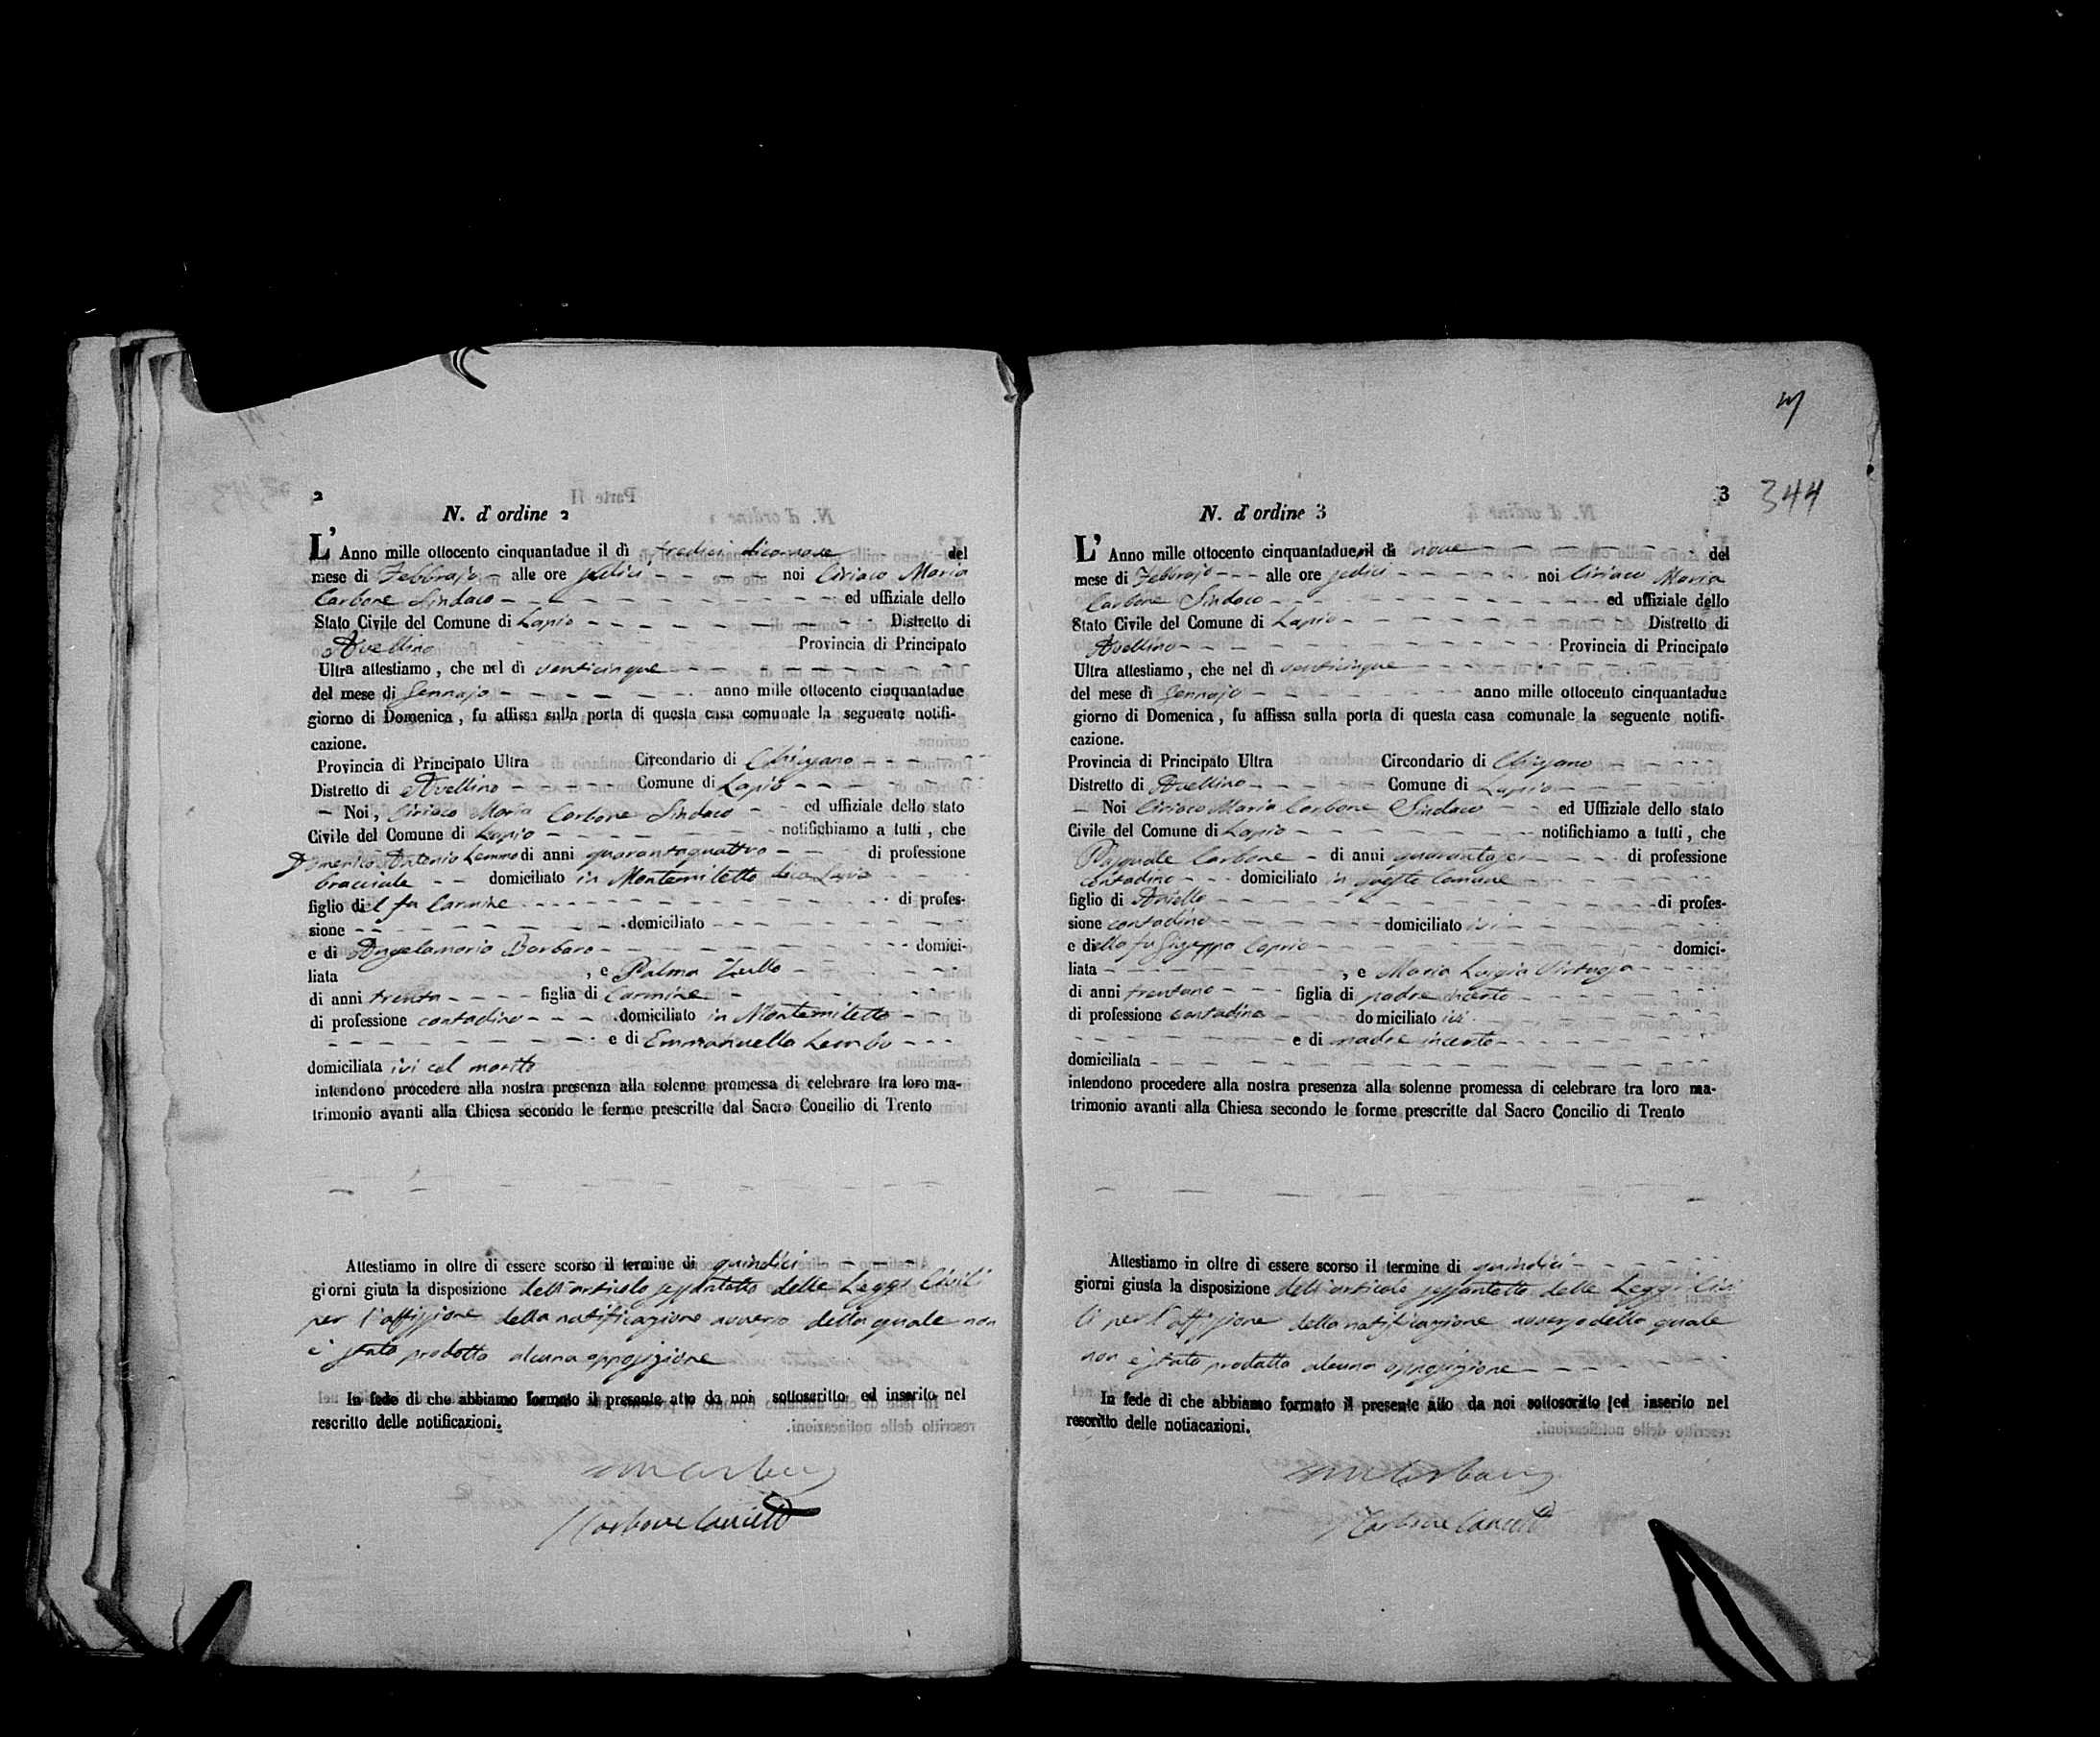 2
N. d' ordine 2
L' Anno mille ottocento cinquantadue il dì tredici dicanove del
mese di Febbrajo - alle ore sedici - - - noi Ciriaco Maria
Carbone Sindaco - - - ed uffiziale dello
Stato Civile del Comune di Lapio - - - Distretto di
Avellino Provincia di Principato
Ultra attestiamo, che nel dì venticinque - - -
del mese di Gennajo - - - anno mille ottocento cinquantadue
giorno di Domenica, fu affissa sulla porta di questa casa comunale la seguente notifi-
cazione.
Provincia di Principato Ultra Circondario di Chiusano - - -
Distretto di Avellino - - - Comune di Lapio - - -
- Noi, Ciriaco Maria Carbone Sindaco - - ed uffiziale dello stato
Civile del Comune di Lapio - - - notifichiamo a tutti, che
Domenico Antonio Lemmo di anni quarantaquattro - - di professione
bracciale - - domiciliato in Montemiletto
figlio del fu Carmine - - - di profes-
sione - - - domiciliato - - -
e di Angelamaria Barbaro - - - domici-
liata , e Palma Zullo - - -
di anni trenta - - - figlia di Carmine -
di professione contadino - - - domiciliato in Montemiletto - -
- - - e di Emmanuella Lembo - - -
domiciliata ivi col marito
intendono procedere alla nostra presenza alla solenne promessa di celebrare tra loro ma-
trimonio avanti alla Chiesa secondo le forme prescritte dal Sacro Concilio di Trento
Attestiamo in oltre di essere scorso il termine di quindici - - -
giorni giuta la disposizione dell'articolo settantotto delle Leggi Civili
per l'affissione della notificazione avverso della quale non
è stato prodotta alcuna opposizione
In fede di che abbiamo formato il presente atto da noi sottoscritto ed inserito nel
rescritto delle notificazioni.
Carbone
3
344
N. d' ordine 3
L' Anno mille ottocento cinquantadue, il dì nove - - - del
mese di Febbrajo - - - alle ore sedici - - - noi Ciriaco Maria
Carbone Sindaco - - - ed uffiziale dello
Stato Civile del Comune di Lapio - - - Distretto di
Avellino - - - Provincia di Principato
Ultra attestiamo, che nel dì venticinque - - -
del mese di Gennajo - - - anno mille ottocento cinquantadue
giorno di Domenica, fu affissa sulla porta di questa casa comunale la seguente notifi-
cazione.
Provincia di Principato Ultra Circondario di Chiusano - - -
Distretto di Avellino - - - Comune di Lapio - - -
- Noi Ciriaco Maria Carbone Sindaco - - ed Uffiziale dello stato
Civile del Comune di Lapio - - - notifichiamo a tutti, che
Pasquale Carbone - di anni quarantasei - - - di professione
contadino - - - domiciliato in questo Comune - - -
figlio di Aniello - - - di profes-
sione contadino - - - domiciliato ivi - - -
e della fu Giuseppa Caprio - - - domici-
liata - - - , e Maria Luigia - - -
di anni trentuno - - - figlia di padre incerto - - -
di professione contadina domiciliato ivi
- - - e di madre incerta - - -
domiciliata - - -
intendono procedere alla nostra presenza alla solenne promessa di celebrare tra loro ma-
trimonio avanti alla Chiesa secondo le forme prescritte dal Sacro Concilio di Trento
Attestiamo in oltre di essere scorso il termine di quindici - - -
giorni giusta la disposizione dell'articolo settantotto delle Leggi Civi
li per l'affissione della notificazione avverso della quale
non è stato prodotta alcuna opposizione - - -
In fede di che abbiamo formato il presente atto da noi sottoscritto ed inserito nel
rescritto delle notiacazioni.
Carbone